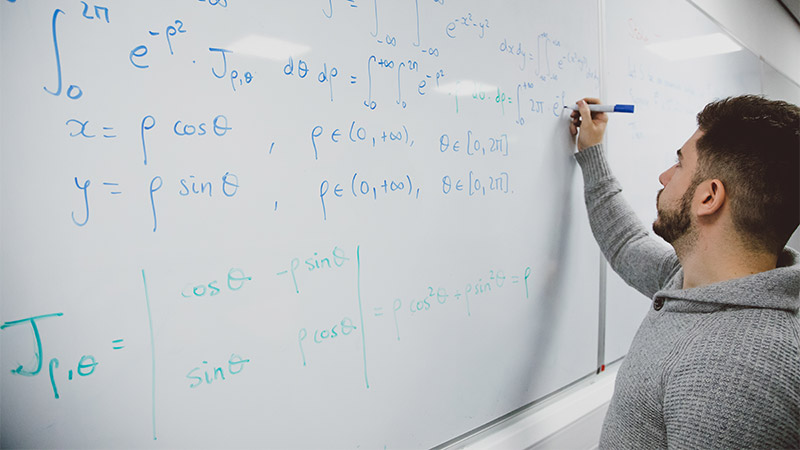 ∫₋∞ ∫₋∞ e^{-x²-y²} dx dy = ∫₋∞^{+∞} ∫
∫₀^{2π} e^{-ρ²} · J_{ρ,θ} dθ dρ = ∫₀^{+∞} ∫₀^{2π} e^{-ρ²} ρ dθ · dρ = ∫₀^{+∞} 2π e^{-ρ
x = ρ cosθ , ρ ∈ (0, +∞), θ ∈ [0, 2π]
y = ρ sinθ , ρ ∈ (0, +∞), θ ∈ [0, 2π].
J_{ρ,θ} = | cosθ -ρ sinθ | = ρ cos²θ + ρ sin²θ = ρ
| sinθ ρ cosθ |